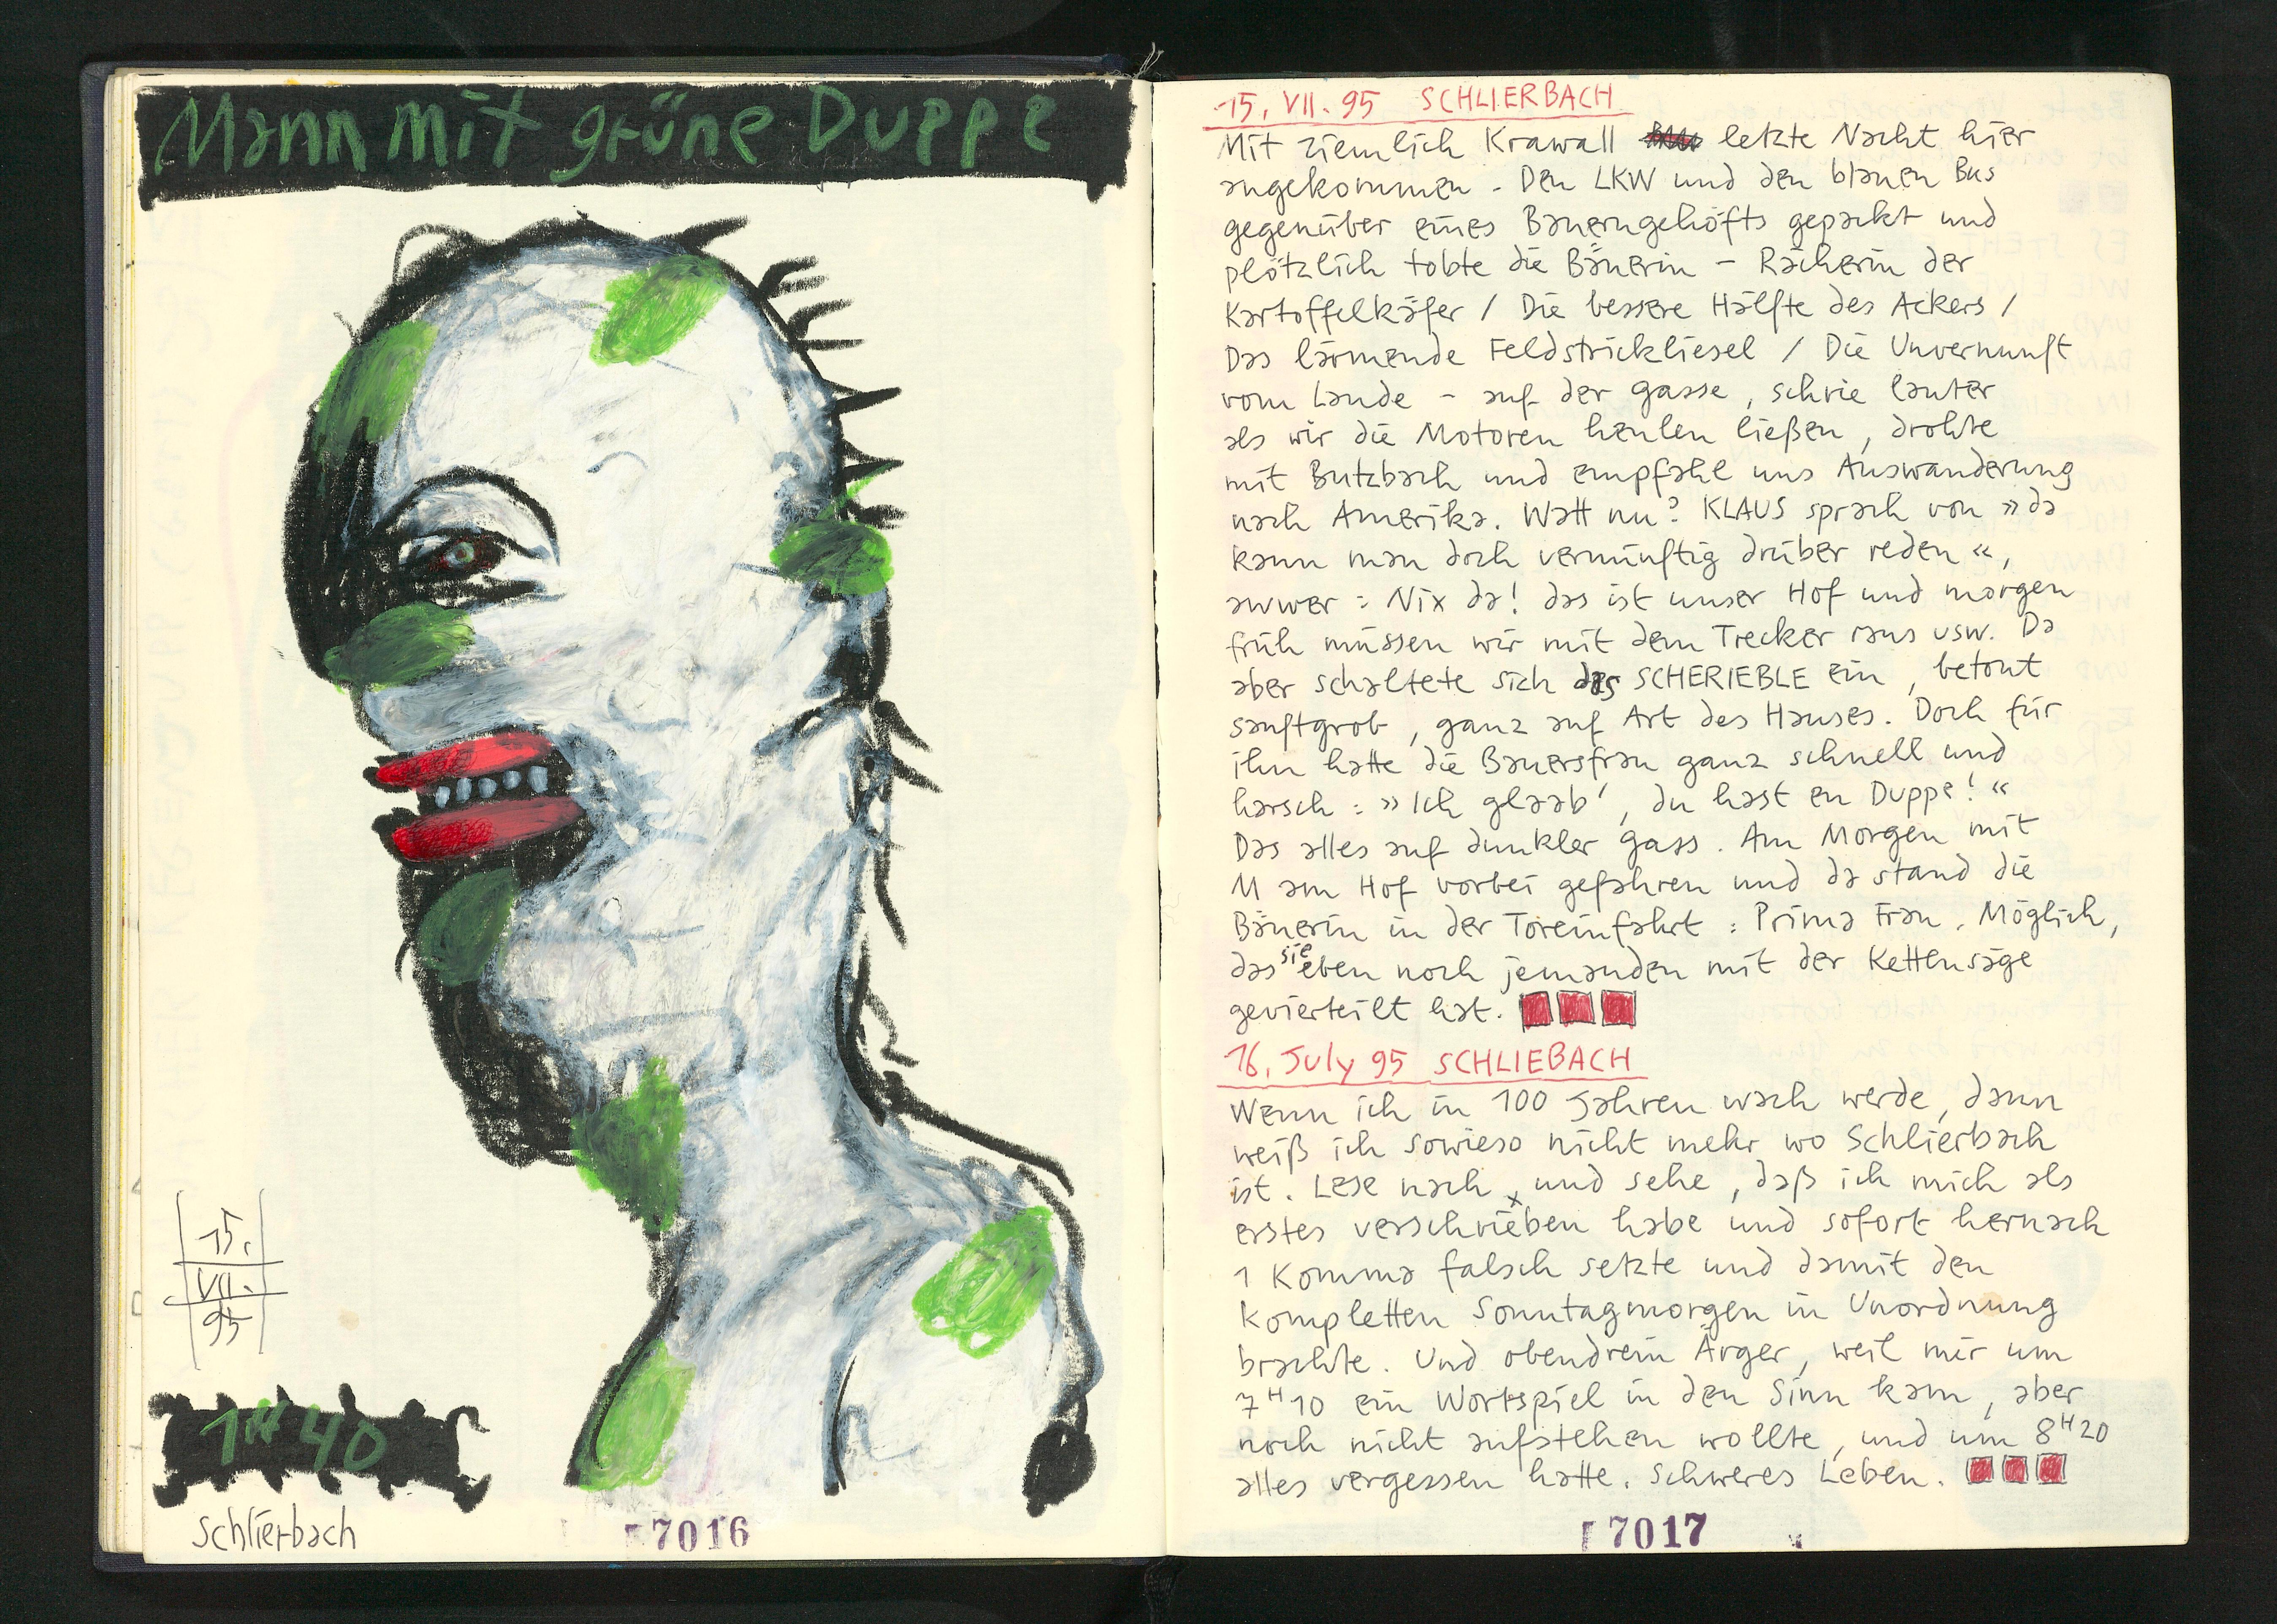 Mann mit grüne Duppe
15.
VII.
95
1H40
Schlierbach
7016
15. VII. 95 SCHLIERBACH
Mit ziemlich Krawall letzte Nacht hier
angekommen - Den LKW und den blauen Bus
gegenüber eines Bauerngehöfts geparkt und
plötzlich tobte die Bäuerin - Rächerin der
Kartoffelkäfer / Die bessere Hälfte des Ackers /
Das lärmende Feldstrickliesel / Die Unvernunft
vom Lande - auf der Gasse, schrie lauter
als wir die Motoren heulen ließen, drohte
mit Butzbach und empfahl uns Auswanderung
nach Amerika. Watt nu? KLAUS sprach von »da
kann man doch vernünftig drüber reden«,
awwer: Nix da! das ist unser Hof und morgen
früh müssen wir mit dem Trecker raus usw. Da
aber schaltete sich das SCHERIEBLE ein, betont
sanftgrob, ganz auf Art des Hauses. Doch für
ihn hatte die Bauersfrau ganz schnell und
harsch: »Ich glaab', du hast en Duppe!«
Das alles auf dunkler Gass. Am Morgen mit
M am Hof vorbei gefahren und da stand die
Bäuerin in der Toreinfahrt: Prima Frau. Möglich,
das sie eben noch jemanden mit der Kettensäge
gevierteilt hat.
16. July 95 SCHLIEBACH
Wenn ich in 100 Jahren wach werde, dann
weiß ich sowieso nicht mehr wo Schlierbach
ist. Lese nach, und sehe, daß ich mich als
erstes verschrieben habe und sofort hernach
1 Komma falsch setzte und damit den
kompletten Sonntagmorgen in Unordnung
brachte. Und obendrein Ärger, weil mir um
7H10 ein Wortspiel in den Sinn kam, aber
noch nicht aufstehen wollte, und um 8H20
alles vergessen hatte. Schweres Leben.
7017